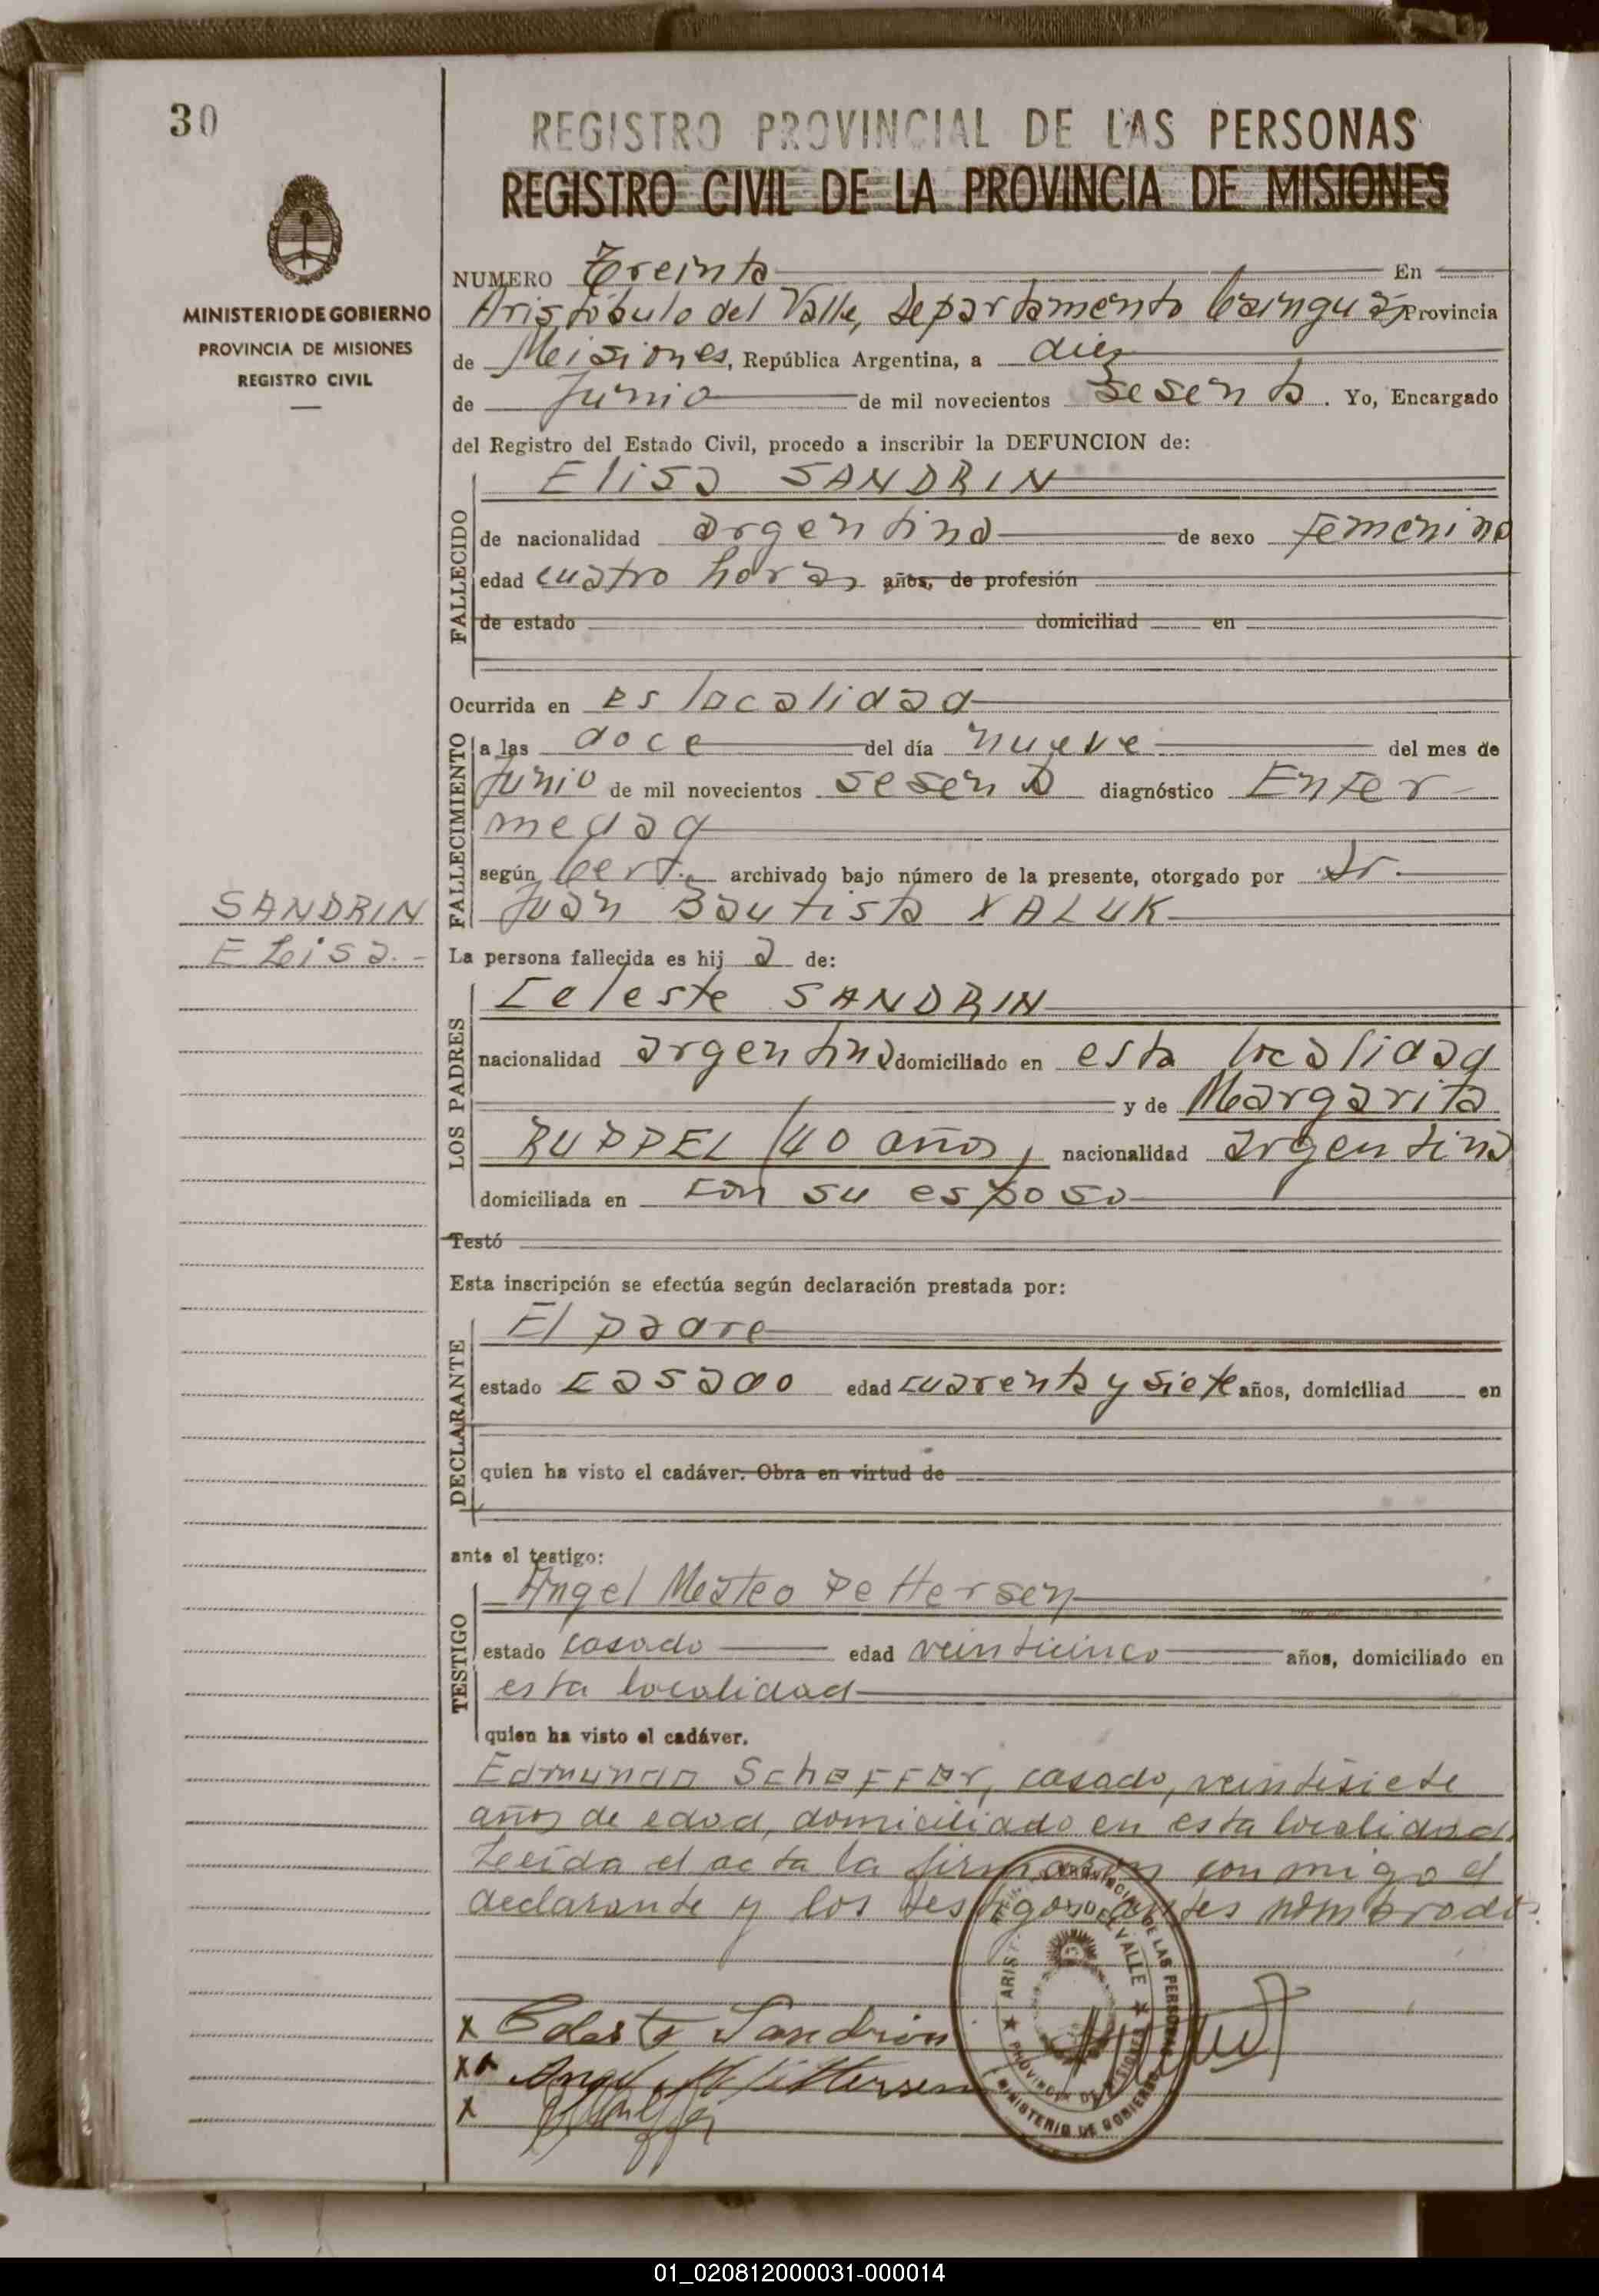 30
REGISTRO PROVINCIAL DE LAS PERSONAS
REGISTRO CIVIL DE LA PROVINCIA DE MISIONES
MINISTERIO DE GOBIERNO
PROVINCIA DE MISIONES
REGISTRO CIVIL
NUMERO Treinta En
Aristóbulo del Valle, Departamento Cainguás Provincia
de Misiones, República Argentina, a diez
de Junio de mil novecientos sesenta. Yo, Encargado
del Registro del Estado Civil, procedo a inscribir la DEFUNCION de:
Elisa SANDRIN
FALLECIDO
de nacionalidad argentina de sexo femenino
edad cuatro horas años, de profesión
de estado domiciliad en
Ocurrida en es localidad
FALLECIMIENTO
a las doce del día nueve del mes de
Junio de mil novecientos sesenta diagnóstico Enfer-
medad
según Cert. archivado bajo número de la presente, otorgado por Dr.
Juan Bautista YALUK
SANDRIN
Elisa.-
La persona fallecida es hij a de:
LOS PADRES
Celeste SANDRIN
nacionalidad argentina domiciliado en esta localidad
y de Margarita
RUPPEL (40 años) nacionalidad argentina
domiciliada en con su esposo
Testó
Esta inscripción se efectúa según declaración prestada por:
DECLARANTE
El padre
estado casado edad cuarenta y siete años, domiciliad en
quien ha visto el cadáver. Obra en virtud de
ante el testigo:
TESTIGO
Angel Mateo Pettersen
estado casado edad veinticinco años, domiciliado en
esta localidad
quien ha visto el cadáver.
Edmundo Scheffer, casado, veintisiete
años de edad, domiciliado en esta localidad.
Leída el acta la firmaron conmigo el
declarante y los testigos antes nombrados.
x Celeste Sandrin
x Angel M Pettersen
x
PROVINCIAL DE LAS PERSONAS
ARIST DEL VALLE
PROVINCIA DE MISIONES
MINISTERIO DE GOBIERNO
01_020812000031-000014